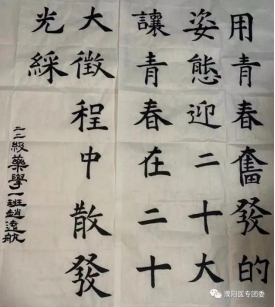 用青春奮發的
姿態迎二十大
讓青春在二十
大徵程中散發
光綵
二二級藥學一班趙逵航
濮阳医专团委